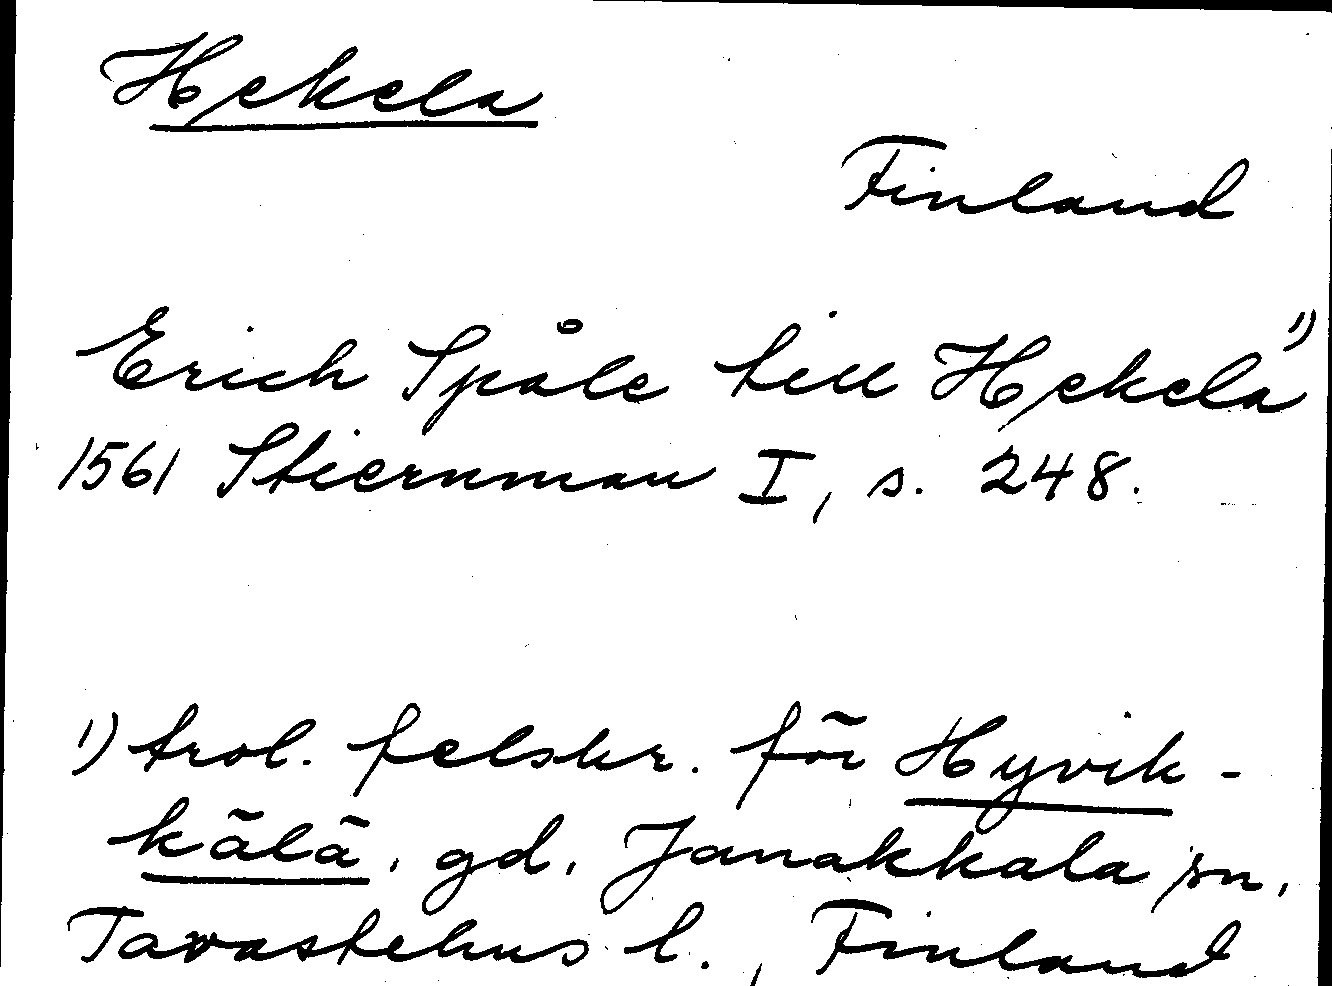 Hekela
Finland
Erich Spåle till Hekela 1)
1561 Stiernman I, s. 248.
1) trol. felskr. för Hyvik-
kälä, gd, Janakkala sn,
Tavastehus l., Finland